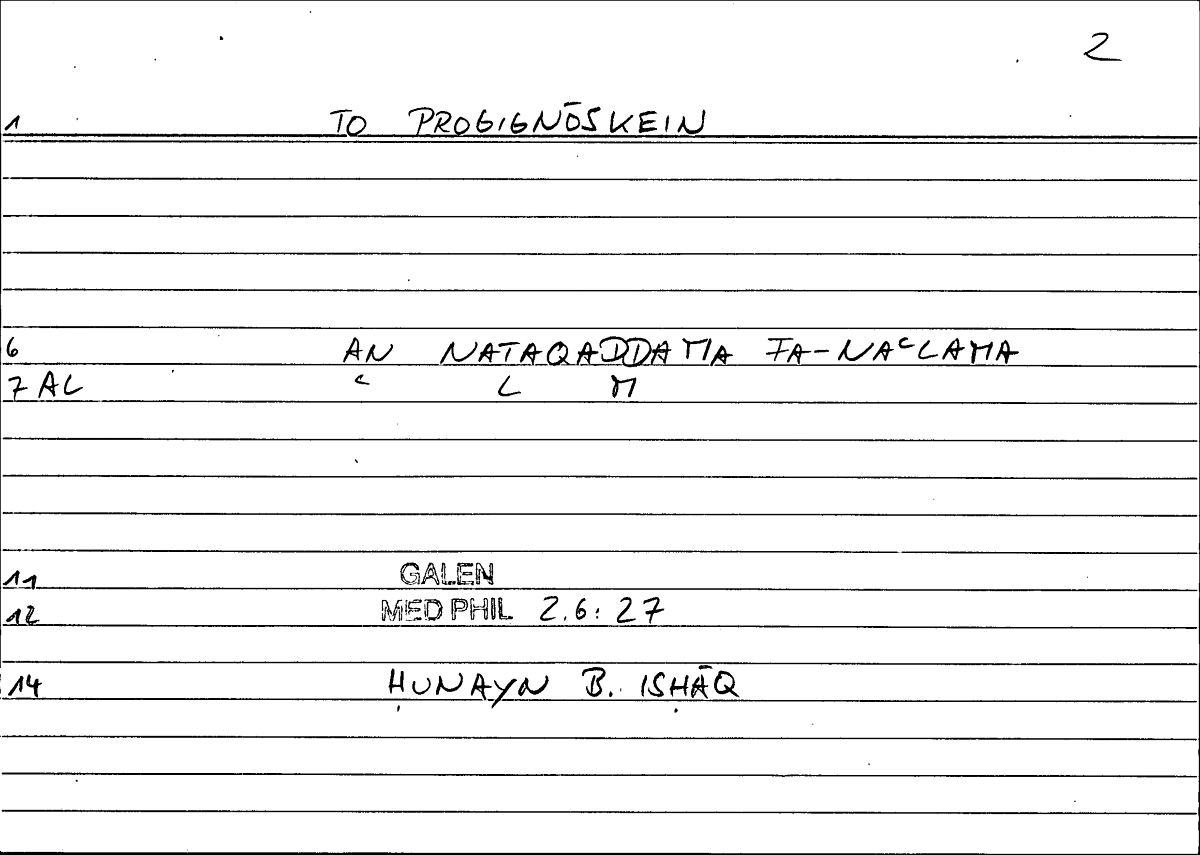 2
1 TO PROGIGNŌSKEIN
6 AN NATAQADDAMA FA-NAʿLAMA
7 AL ʿ L M
11 GALEN
12 MED PHIL 2.6: 27
14 ḤUNAYN B. ISḤĀQ